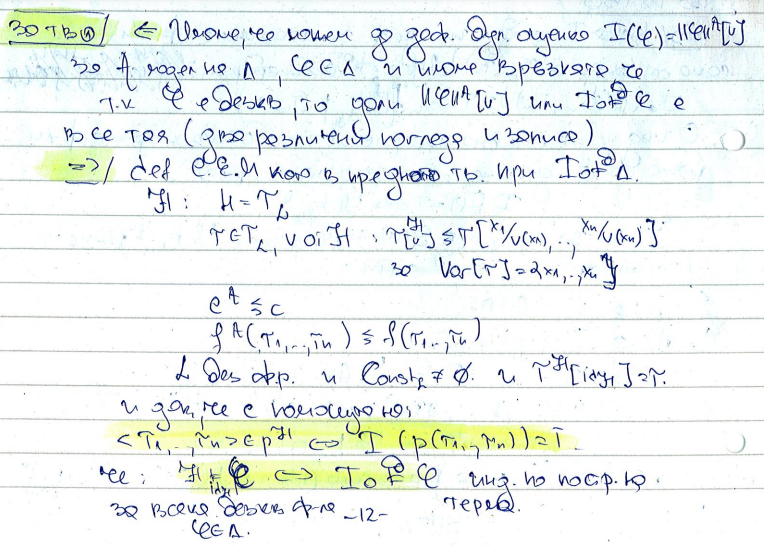 за тв ① / ⇐ Имаме, че можем да деф. бул. оценка I(φ)=||φ||ᴬ[v]
за A модел на Δ, φ∈Δ и имаме връзката че
т.к φ е безкв, то дали ||φ||ᴬ[v] или I₀ ⊨ φ е
все тая (два различни погледа и записа)
⇒/ def С.Е.М като в предното тв. при I₀ ⊨ Δ.
ℋ: H = T_L
τ∈T_L, v оц ℋ : τ^ℋ[v] ≤ τ[x₁/v(x₁), .., xₙ/v(xₙ)]
за Var[τ]={x₁,..,xₙ}
c^A ≤ c
f^A(τ₁,..,τₙ) ≤ f(τ₁..,τₙ)
L без фр. и Const_L ≠ ∅. и τ^ℋ[id_ℋ]=τ.
и док, че с помощта на:
<τ₁,..,τₙ>∈p^ℋ ⇔ I(p(τ₁,..,τₙ))=T.
че: ℋ ⊨ φ ⇔ I₀ ⊨ φ инд. по постр. на
id_ℋ
за всяка безкв ф-ла
φ∈Δ.
-12-